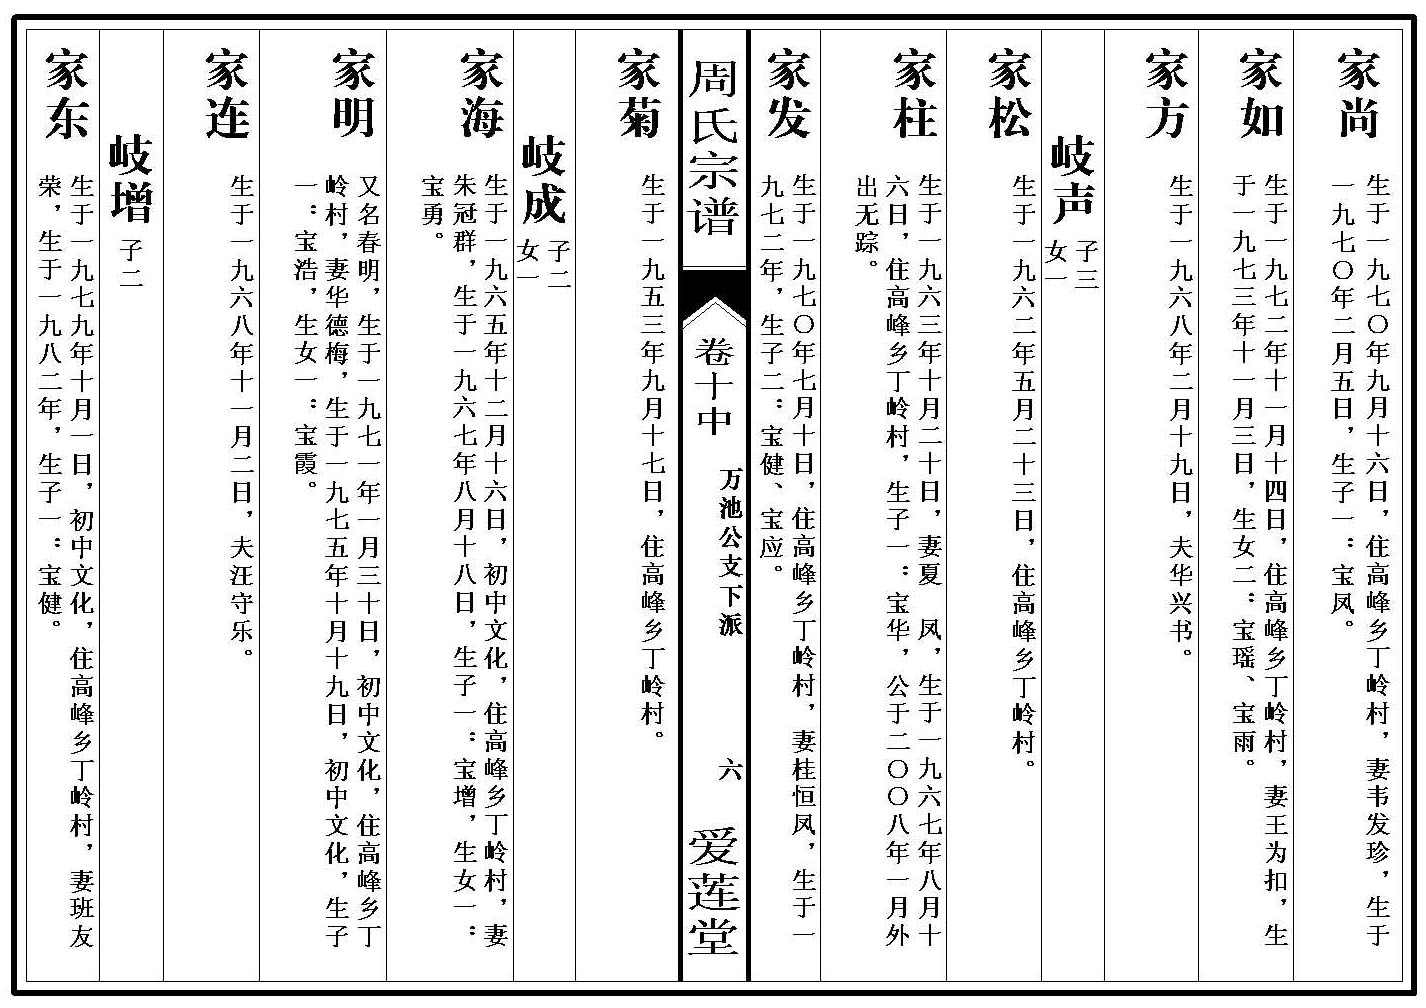 家尚
生于一九七〇年九月十六日，住高峰乡丁岭村，妻韦发珍，生于
一九七〇年二月五日，生子一：宝凤。
家如
生于一九七二年十一月十四日，住高峰乡丁岭村，妻王为扣，生
于一九七三年十一月三日，生女二：宝瑶、宝雨。
家方
生于一九六八年二月十九日，夫华兴书。
岐声
子三
女一
家松
生于一九六二年五月二十三日，住高峰乡丁岭村。
家柱
生于一九六三年十月二十日，妻夏　凤，生于一九六七年八月十
六日，住高峰乡丁岭村，生子一：宝华，公于二〇〇八年一月外
出无踪。
家发
生于一九七〇年七月十日，住高峰乡丁岭村，妻桂恒凤，生于一
九七二年，生子二：宝健、宝应。
周氏宗谱
卷十中
万池公支下派
六
爱莲堂
家菊
生于一九五三年九月十七日，住高峰乡丁岭村。
岐成
子二
女一
家海
生于一九六五年十二月十六日，初中文化，住高峰乡丁岭村，妻
朱冠群，生于一九六七年八月十八日，生子一：宝增，生女一：
宝勇。
家明
又名春明，生于一九七一年一月三十日，初中文化，住高峰乡丁
岭村，妻华德梅，生于一九七五年十月十九日，初中文化，生子
一：宝浩，生女一：宝霞。
家连
生于一九六八年十一月二日，夫汪守乐。
岐增
子二
家东
生于一九七九年十月一日，初中文化，住高峰乡丁岭村，妻班友
荣，生于一九八二年，生子一：宝健。